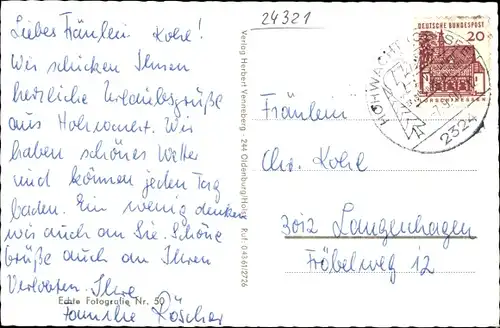 24321
Liebes Fräulein Kohl!
Wir schicken Ihnen
herzliche Urlaubsgrüße
aus Hohwacht. Wir
haben schönes Wetter
und können jeden Tag
baden. Ein wenig denken
wir auch an Sie. Schöne
Grüße auch an Ihren
Verlobten. Ihre
Echte Fotografie Nr. 50
Familie Röscher
Verlag Herbert Venneberg - 244 Oldenburg/Holst. Ruf: 04361/2726
DEUTSCHE BUNDESPOST
20
HOHWACHT
2324
Fräulein
Chr. Kohl
3012 Langenhagen
Fröbelweg 12